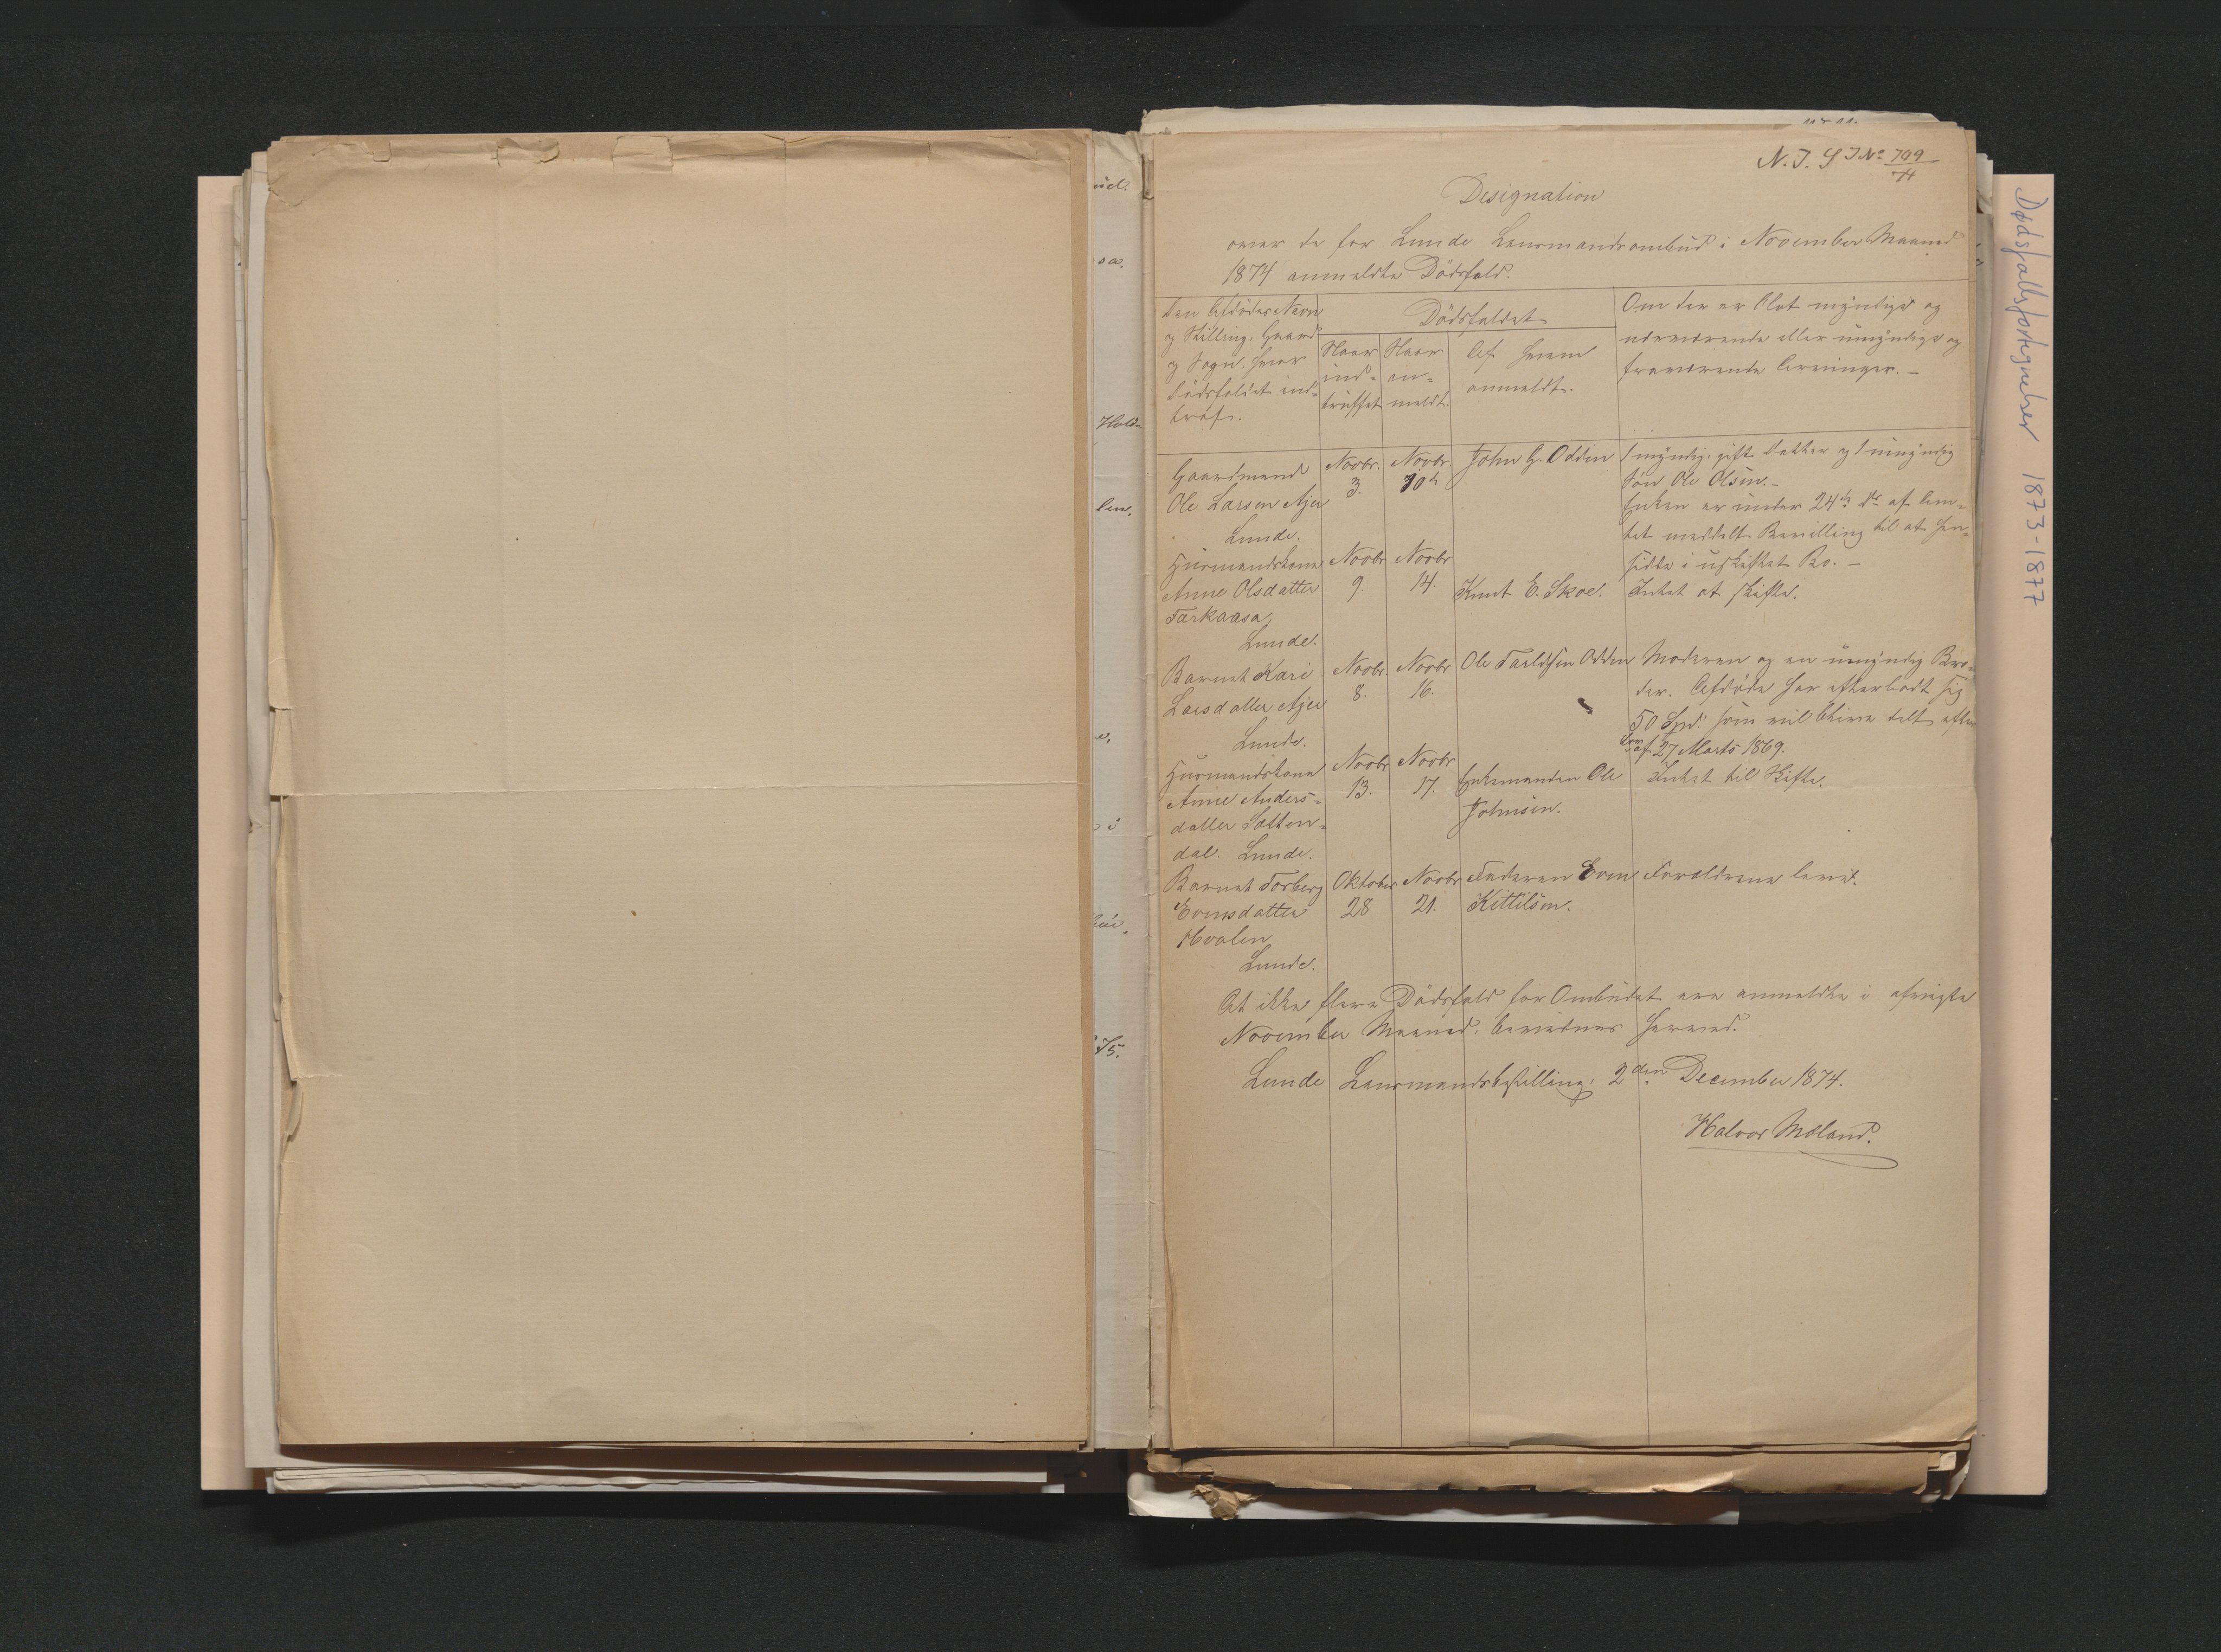 N. J. S J. No 709/74
Designation
over de for Lunde Lensmandsombud i November Maaned
1874 anmeldte Dödsfald.
Den Afdödes Navn
og Stilling, Gaard
og Sogn, hvor
Dödsfaldet ind-
traf.
Dödsfaldet
Naar
ind-
truffet
Naar
an-
meldt.
Af hvem
anmeldt.
Om der er blot myndige og
nærværende eller umyndige og
fraværende Arvinger. -
Gaardmand
Ole Larsen Ajer
Lunde.
Novbr.
3.
Novbr.
10de
John G. Odden
1 myndig, gift Datter og 1 umyndig
Søn Ole Olsen. -
Enken er under 24de ds af Am-
tet meddelt Bevilling til at hen-
sidde i uskiftet Bo. -
Huusmandskone
Anne Olsdatter
Tarkaasa,
Lunde.
Novbr
9.
Novbr
14.
Knut E. Skoe.
Intet at skifte.
Barnet Kari
Larsdatter Ajer
Lunde.
Novbr.
8.
Novbr
16.
Ole Tarldsen Odden
Moderen og en umyndig Bro-
der. Afdöde har efterladt sig
50 Spd. som vil blive delt efter
Lov af 27 Marts 1869.
Huusmandskone
Anne Anders-
datter Sætten-
dal. Lunde.
Novbr
13.
Novbr
17.
Enkemanden Ole
Johnsen.
Intet til Skifte.
Barnet Torberg
Evensdatter
Hvalen
Lunde.
Oktober
28
Novbr
21.
Faderen Even
Kittilsen.
Forældrene lever.
At ikke flere Dödsfald for Ombudet ere anmeldte i afvigte
November Maaned, bevidnes herved.
Lunde Lensmandsbestilling, 2den December 1874.
Halvor Moland.
Dødsfallsfortegnelser 1873-1877